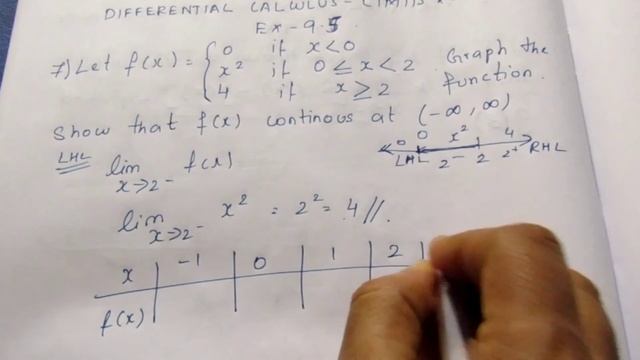 DIFFERENTIAL CALCULUS - LIMITS
Ex - 9.5
7) Let f(x) = { 0 if x < 0
x² if 0 ≤ x < 2
4 if x ≥ 2
Graph the function.
Show that f(x) continous at (-∞, ∞)
0 0 x² 4
LHL 2⁻ 2 2⁺ RHL
LHL lim x→2- f(x)
lim x→2- x² = 2² = 4 //.
x | -1 | 0 | 1 | 2 |
f(x)